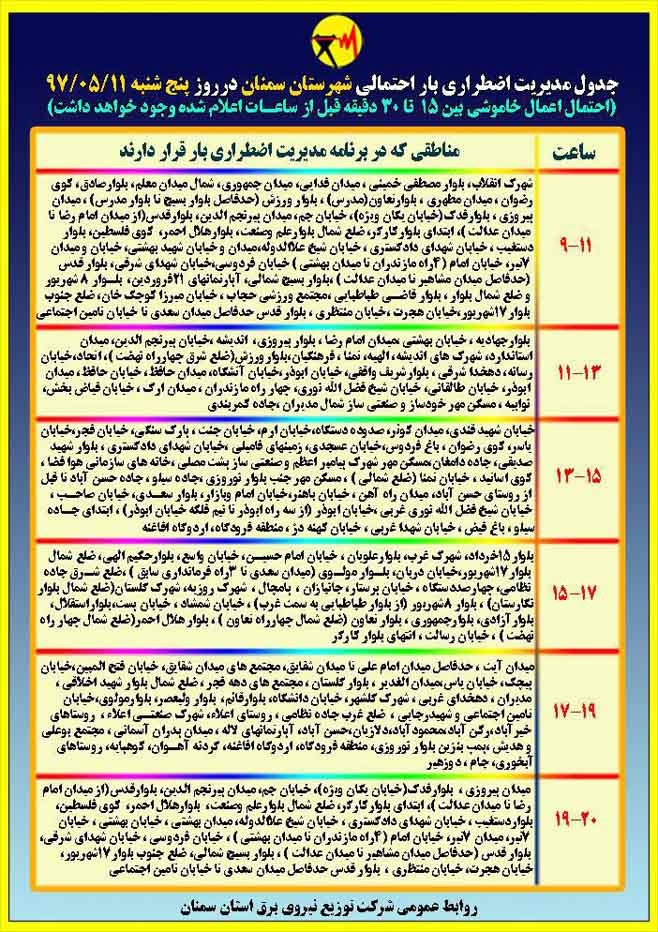 جدول مدیریت اضطراری بار احتمالی شهرستان سمنان در روز پنج شنبه ۹۷/۰۵/۱۱
(احتمال اعمال خاموشی بین ۱۵ تا ۳۰ دقیقه قبل از ساعات اعلام شده وجود خواهد داشت)
ساعت
مناطقی که در برنامه مدیریت اضطراری بار قرار دارند
۹-۱۱
شهرک انقلاب، بلوار مصطفی خمینی ، میدان فدایی، میدان جمهوری ، شمال میدان معلم، بلوارصادق، کوی
رضوان ، میدان مطهری ، بلوارتعاون(مدرس) ، بلوار ورزش (حدفاصل بلوار بسیج تا بلوار مدرس) ، میدان
پیروزی ، بلوارفدک(خیابان یکان ویژه)، خیابان جم، میدان پیرنجم الدین، بلوارقدس(از میدان امام رضا تا
میدان عدالت )، ابتدای بلوارکارگر، ضلع شمال بلوارعلم وصنعت، بلوارهلال احمر، کوی فلسطین، بلوار
دستغیب ، خیابان شهدای دادگستری ، خیابان شیخ علاالدوله،میدان وخیابان شهید بهشتی، خیابان و میدان
۷تیر، خیابان امام (۴راه مازندران تا میدان بهشتی ) خیابان فردوسی،خیابان شهدای شرقی، بلوار قدس
(حدفاصل میدان مشاهیر تا میدان عدالت )، بلوار بسیج شمالی، آپارتمانهای ۲۱فروردین، بلوار ۸ شهریور
و ضلع شمال بلوار ، بلوار قاضی طباطبایی ،مجتمع ورزشی حجاب ، خیابان میرزا کوچک خان، ضلع جنوب
بلوار۱۷شهریور،خیابان هجرت، خیابان منتظری ، بلوار قدس حدفاصل میدان سعدی تا خیابان تامین اجتماعی
۱۱-۱۳
بلوارجهادیه ، خیابان بهشتی ،میدان امام رضا ، بلوار پیروزی، اندیشه، خیابان پیرنجم الدین، میدان
استاندارد، شهرک های اندیشه، الهیه، نمثا ، فرهنگیان،بلوارورزش(ضلع شرق چهارراه نهضت )، اتحاد،خیابان
رسانه ، دهخدا شرقی ، بلوار شریف واقفی، خیابان ابوذر،خیابان آتشگاه، میدان حافظ ، خیابان حافظ، میدان
ابوذر، خیابان طالقانی، خیابان شیخ فضل الله نوری، چهار راه مازندران ، میدان ارگ ، خیابان فیاض بخش،
توابیه ، مسکن مهر خودساز و صنعتی ساز شمال مدیران ،جاده کمربندی
۱۳-۱۵
خیابان شهید قندی، میدان کوثر، صدوده دستگاه، خیابان ارم، خیابان جنت ، پارک سنگی، خیابان فجر،خیابان
یاسر، کوی رضوان ، باغ فردوس، خیابان عسجدی، زمینهای فامیلی ، خیابان شهدای دادگستری ، بلوار شهید
صدیقی، جاده دامغان،مسکن مهر شهرک پیامبر اعظم و صنعتی ساز پشت مصلی ،خانه های سازمانی هوا فضا ،
کوی اساتید ، خیابان نمثا (ضلع شمالی ) ، مسکن مهر جنب بلوار نوروزی ،جاده سیلو ، جاده حسن آباد تا قبل
از روستای حسن آباد، میدان راه آهن ، خیابان باهنر،خیابان امام وبازار، بلوار سعدی، خیابان صاحب ،
خیابان شیخ فضل الله نوری غربی، خیابان ابوذر (از سه راه ابوذر تا نیم فلکه خیابان ابوذر) ، ابتدای جاده
سیلو ، باغ فیض ، خیابان شهدا غربی ، خیابان کهنه دژ ، منطقه فرودگاه، اردوگاه افاغنه
۱۵-۱۷
بلوار۱۵خرداد، شهرک غرب، بلوارعلویان ، خیابان امام حسین، خیابان واسع، بلوارحکیم الهی، ضلع شمال
بلوار۱۷شهریور،خیابان دربان، بلوار مولوی (میدان سعدی تا ۳راه فرمانداری سابق ) ،ضلع شرق جاده
نظامی، چهارصددستگاه ، خیابان پرستار، جانبازان ، پامچال ، شهرک روزیه، شهرک گلستان(ضلع شمال بلوار
نگارستان) ، بلوار ۸شهریور (از بلوار طباطبایی به سمت غرب) ، خیابان شمشاد ، خیابان بست،بلواراستقلال،
بلوار آزادی، بلوارجمهوری ، بلوار تعاون (ضلع شمال چهارراه تعاون ) ، بلوار هلال احمر(ضلع شمال چهار راه
نهضت ) ، خیابان رسالت ، انتهای بلوار کارگر
۱۷-۱۹
میدان آیت ، حدفاصل میدان امام علی تا میدان شقایق، مجتمع های میدان شقایق، خیابان فتح المبین،خیابان
پیچک، خیابان یاس،میدان الغدیر ، بلوار گلستان ، مجتمع های دهه فجر ، ضلع شمال بلوار شهید اخلاقی ،
مدیران ، دهخدای غربی ، شهرک گلشهر، خیابان دانشگاه، بلوارقائم، بلوار ولیعصر، بلوارمولوی،خیابان
تامین اجتماعی و شهیدرجایی ، ضلع غرب جاده نظامی ، روستای اعلاء، شهرک صنعتی اعلاء ، روستاهای
خیرآباد،رکن آباد،محمودآباد،دلازیان،حسن آباد، آپارتمانهای لاله ، میدان پدران آسمانی ، مجتمع بوعلی
و هدیش ،پمپ بنزین بلوار نوروزی، منطقه فرودگاه، اردوگاه افاغنه، گردنه آهوان، کوهپایه، روستاهای
آبخوری، جام ، دوزهیر
۱۹-۲۰
میدان پیروزی ، بلوارفدک(خیابان یکان ویژه)، خیابان جم، میدان پیرنجم الدین، بلوارقدس(از میدان امام
رضا تا میدان عدالت )، ابتدای بلوارکارگر، ضلع شمال بلوارعلم وصنعت، بلوارهلال احمر، کوی فلسطین،
بلواردستغیب ، خیابان شهدای دادگستری ، خیابان شیخ علاالدوله، میدان بهشتی ، خیابان بهشتی ، خیابان
۷تیر، میدان ۷تیر، خیابان امام (۴راه مازندران تا میدان بهشتی ) ، خیابان فردوسی ، خیابان شهدای شرقی،
بلوار قدس (حدفاصل میدان مشاهیر تا میدان عدالت ) ، بلوار بسیج شمالی، ضلع جنوب بلوار ۱۷شهریور،
خیابان هجرت، خیابان منتظری ، بلوار قدس حدفاصل میدان سعدی تا خیابان تامین اجتماعی
روابط عمومی شرکت توزیع نیروی برق استان سمنان